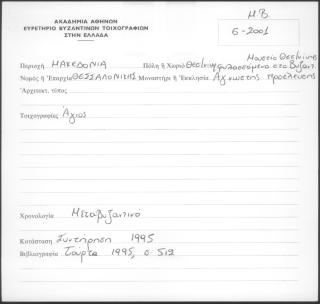 ΑΚΑΔΗΜΙΑ ΑΘΗΝΩΝ
ΕΥΡΕΤΗΡΙΟ ΒΥΖΑΝΤΙΝΩΝ ΤΟΙΧΟΓΡΑΦΙΩΝ
ΣΤΗΝ ΕΛΛΑΔΑ
Μ.Β.
6-2001
Περιοχή ΜΑΚΕΔΟΝΙΑ Πόλη ή Χωριό Θεσ/νίκη φυλασσόμενο στο Βυζαντ. Μουσείο Θεσ/νίκης
Νομός ή Ἐπαρχία ΘΕΣΣΑΛΟΝΙΚΗΣ Μοναστήρι ή Ἐκκλησία Άγνωστης προέλευσης
Ἀρχιτεκτ. τύπος
Τοιχογραφίες Άγιος
Χρονολογία Μεταβυζαντινό
Κατάσταση Συντήρηση 1995
Βιβλιογραφία Τούρτα 1995, σ. 512